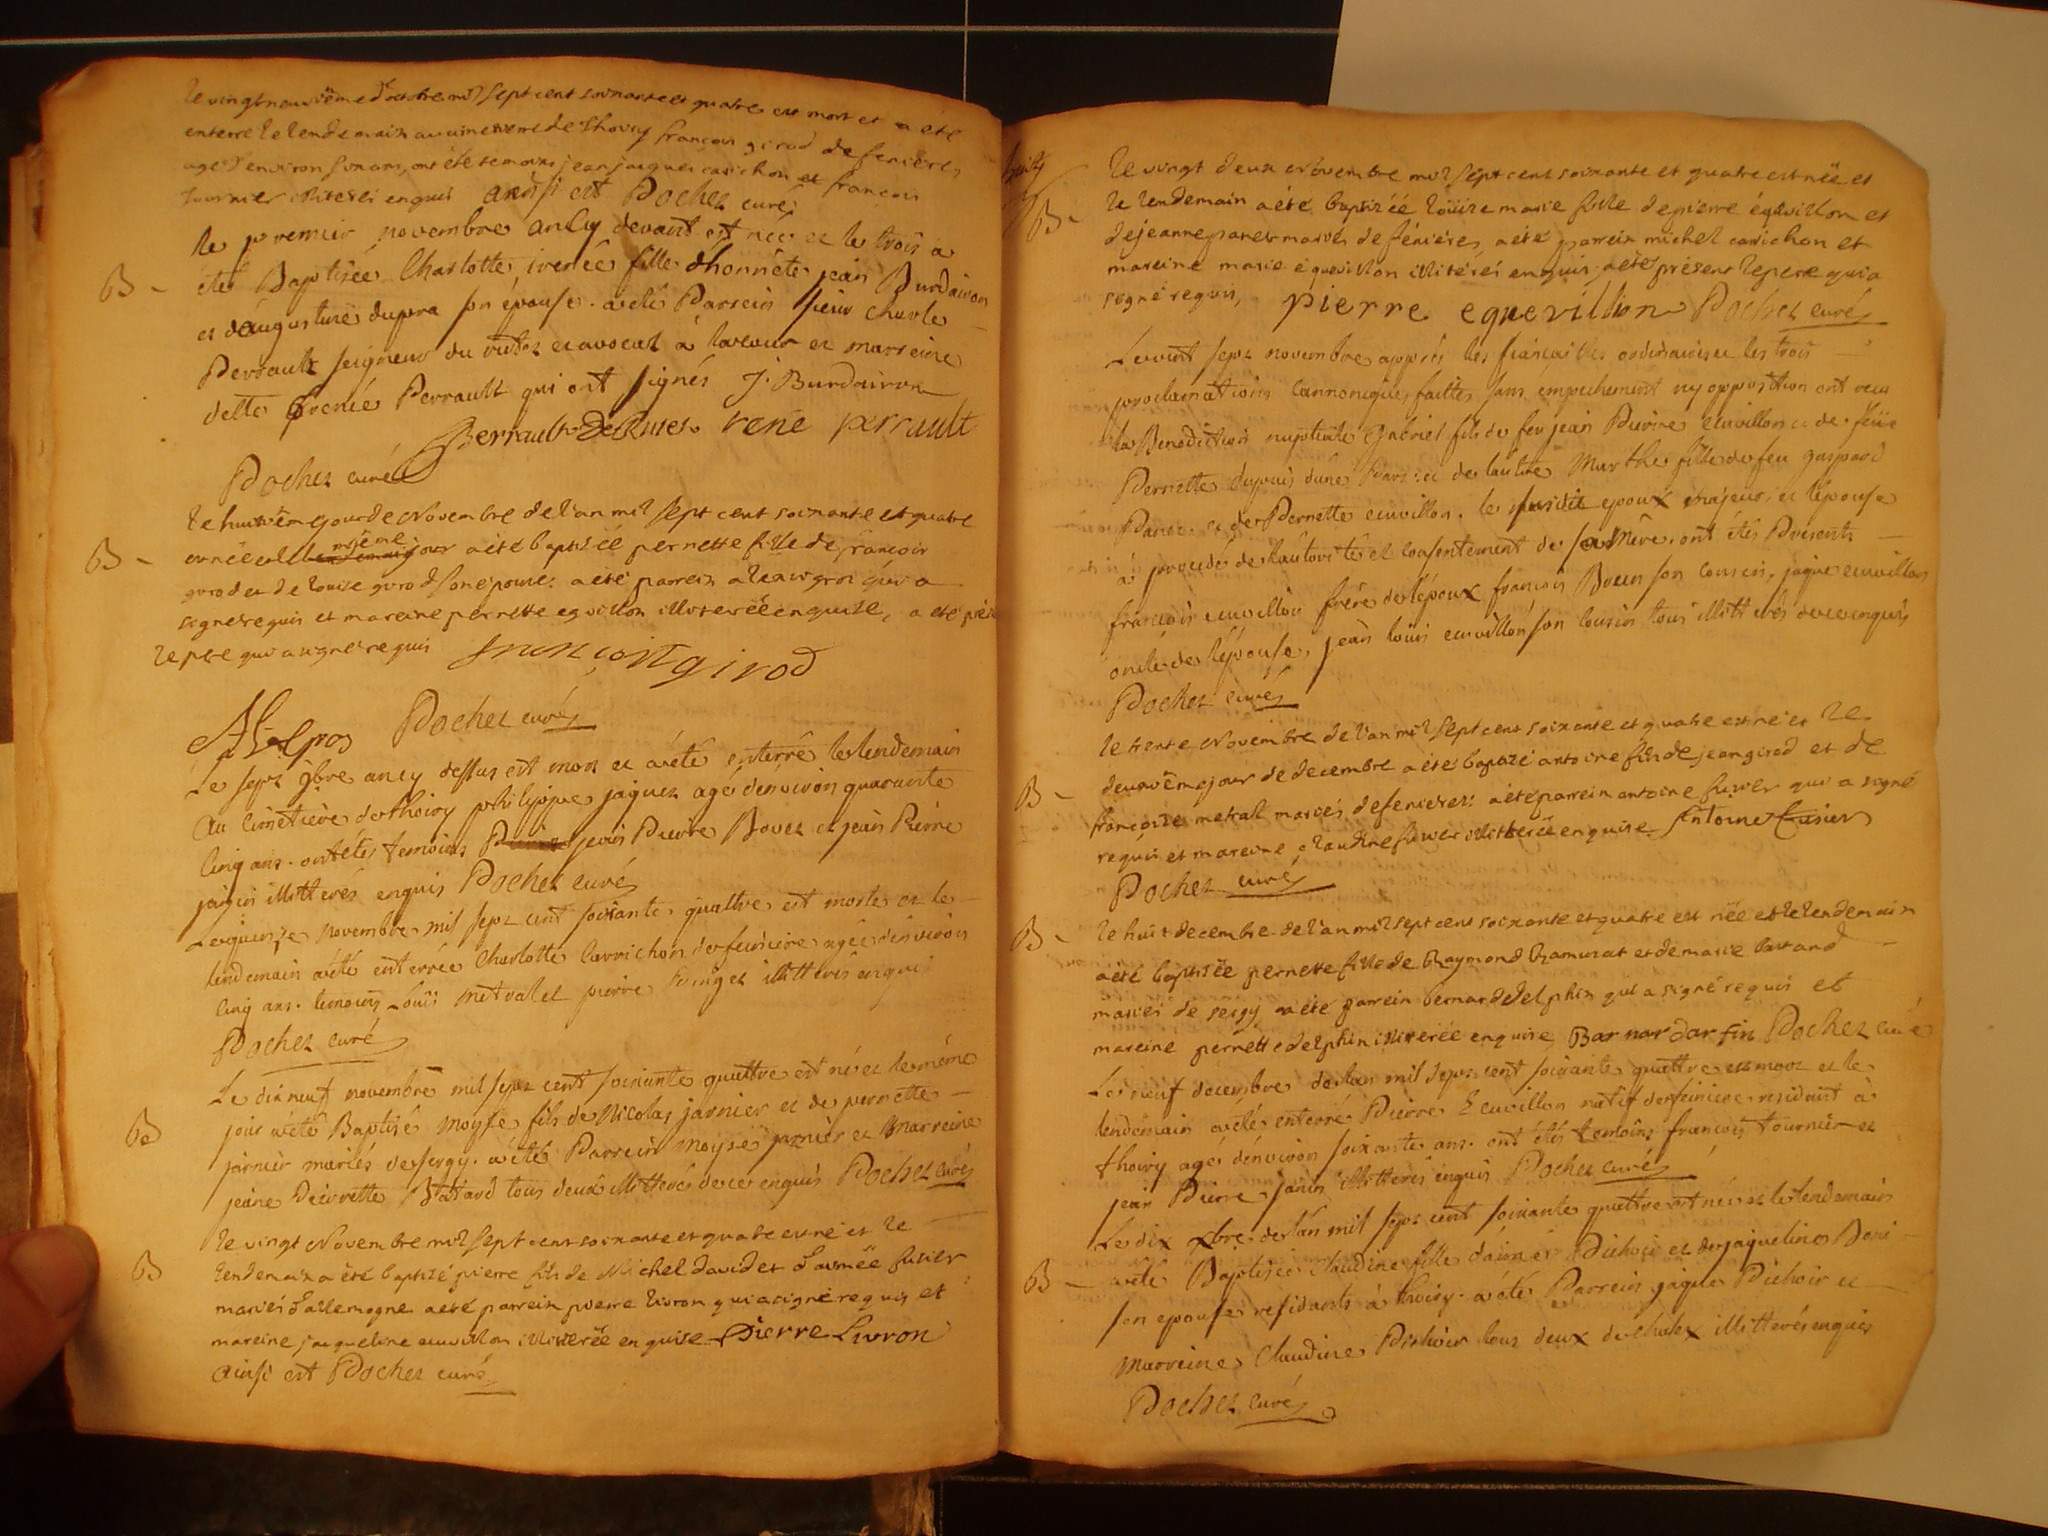 le vingt neuvième d'octobre mil sept cent soixante et quatre est mort et a été
enterré le lendemain au cimetiere de Thoiry francois girod de fenières
agé d'environ ans, ont été temoins jean jaques carichon et francois
tournier illiterés enquis ainsi est Pochet curé
le premier novembre an cy devant est née et le trois a
B - été Baptisée Charlotte irenée fille d'honnête jean Burdairon
et d'augustine dupra son épouse. a été Parrein sieur Charle
Perrault seigneur du rutet et avocat à la cour et marreine
delle irenée Perrault qui ont signés J. Burdairon
Perrault De Rutet rené perrault
Pochet curé
le huitvêm jour de Novembre de l'an mil sept cent soixante et quatre
B - est née et le même jour a été baptisée pernette fille de francois
girod et de louise girod son epouse. a été parrein alexis gros qui a
signé requis et mareine pernette egvillon illiterée enquise, a été prés
le pere qui a signé requis francoit girod
Pochet curé
Le sept 9bre an cy dessus est mort et a été enterré le lendemain
au cimetière de Thoiry philippe jaquet agé d'environ quarante
cinq ans. ont étés temoins jean Pierre Bovet et jean Pierre
janin illitterés enquis Pochet curé
Le quinze novembre mil sept cent soixante quattre est morte et le
lendemain a été enterrée Charlotte Carrichon de feniere agée d'environ
cinq ans. temoins Louis metral et pierre illitterés enquis
Pochet curé
Le dix neuf novembre mil sept cent soixante quattre est né et le même
B jour a été Baptisé moyse fils de Nicolas jarnier et de pernette
jarnier mariés de sergy. a été Parrein moyse jarnier et Marreine
jeane Pierrette Bastard tous deux illitterés de ce enquis Pochet curé
le vingt Novembre mil sept cent soixante et quatre est né et le
B lendemain a été baptizé pierre fils de Michel david et d'aimée fusier
mariés d'allemogne a été parrein pierre livron qui a signé requis et
mareine jaqueline euvillon illiterée enquise Pierre Livron
ainsi est Pochet curé
le vingt deux Novembre mil sept cent soixante et quatre est née et
B - le lendemain a été baptizéé louise marie fille de pierre égevillon et
de jeanne panet mariés de fénières, a été parrein michel carichon et
mareine marie éguevillon illiterés enquis. a été présent le pere qui a
signé requis, pierre eguevillion Pochet curé
Le vint sept novembre apprès les fiançailles ordinaires et les trois
proclamations cannoniques faittes sans empechement ny opposition ont reçu
la Benediction nuptiale Gabriel fils de feu jean Pierre Euvillon et de feüe
Pernette dupuis d'une Part: et de l'autre Marthe fille de feu gaspard
Panet et de Pernette euvillon. le susdit epoux majeur, et l'épouse
à procedé de l'autorité et consentement de sa Mère. ont étés Présents
francois euvillon frère de l'époux francois Boven son cousin, jaque euvillon
oncle de l'épouse, jean loüis euvillon son cousin tous illitterés de ce enquis
Pochet curé
le trente Novembre de l'an mil sept cent soixante et quatre est né et le
B - deuxvême jour de decembre a été baptizé antoine fils de jean girod et de
françoise metral mariés de fenieres: a été parrein antoine fusier qui a signé
requis et mareine claudine fusier illiterée enquise Antoine Fusier
Pochet curé
B - le huit decembre de l'an mil sept cent soixante et quatre est née et le lendemain
a été baptisée pernette fille de Raymond Ramusat et de marie bastard
mariés de sergy, a été parrein bernard delphin qui a signé requis et
mareine pernette delphin illiterée enquise Barnar darfin Pochet curé
Le neuf decembre de l'an mil sept cent soixante quattre est mort et le
lendemain a été enterré Pierre Euvillon natif de feiniere residant à
thoiry agé d'environ soixante ans. ont étés temoins francois tournier et
jean Pierre janin illitterés enquis Pochet curé
Le dix xbre de l'an mil sept cent soixante quattre est née et le lendemain
B - a été Baptisée claudine fille d'aimé Pichoir et de jaqueline
son epouse residants à thoiry. a été Parrein jaque Pichoir et
Marreine Claudine Pichoir tous deux de chalex illitterés enquis
Pochet curé